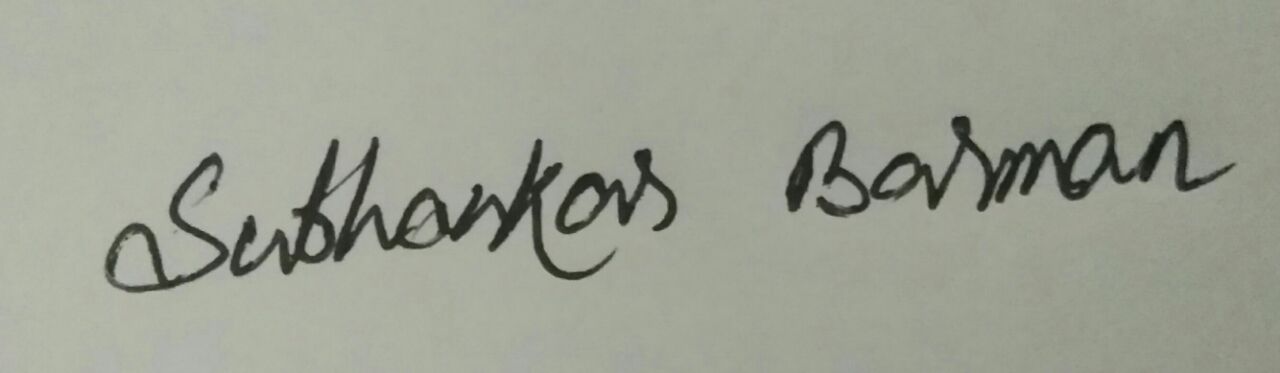 Subhankar Barman